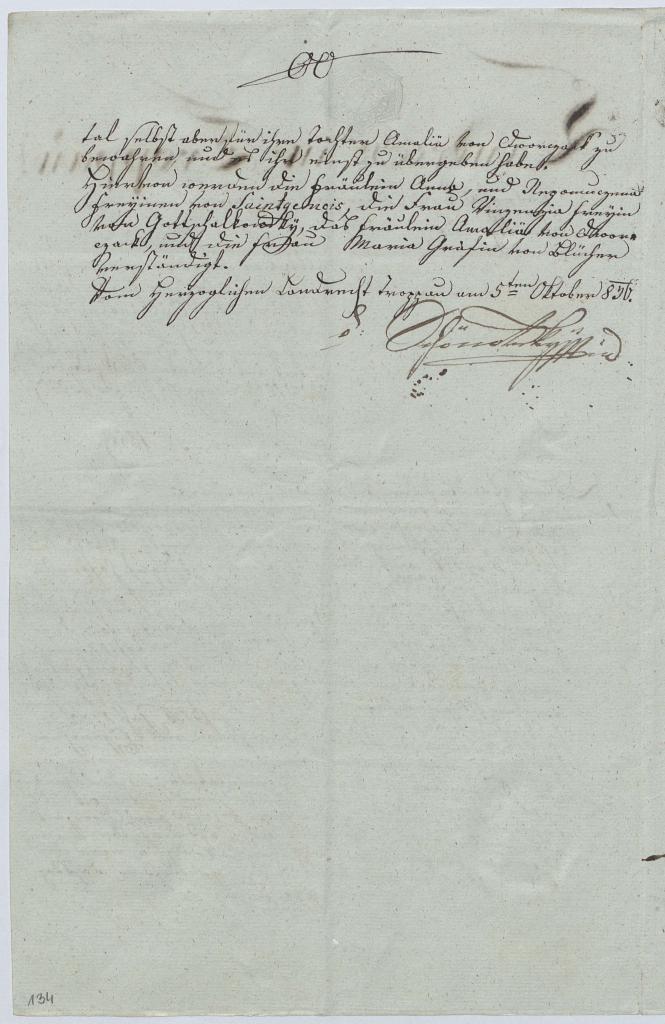 tal selbst aber für ihre Tochter Amalia von Dworzack zu
bewahren und es ihr einst zu übergeben habe.
Hievon werden die Fräulein Anna, und Nepomuczena
Freyinen von Saintgenois, die Frau Vinzenzia Freyin
von Gottschalkowsky, das Fräulein Amalia von Dwor-
czack und die Frau Maria Gräfin von Blücher
verständigt.
Vom Herzoglichen Landrecht Troppau am 5ten Oktober 836.
134